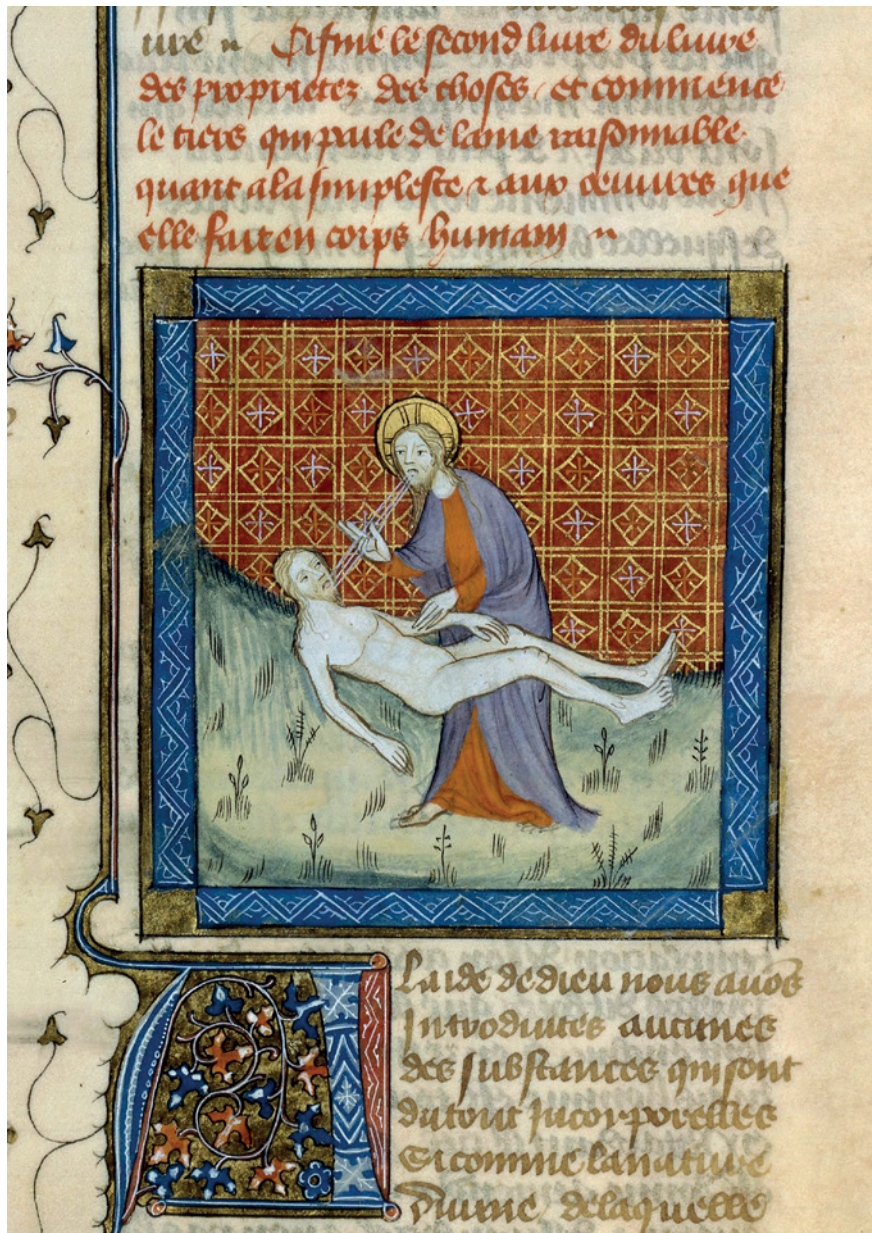 ure Cy fine le second liure du liure
des proprietez des choses et commence
le tiers qui parle de lame raisonnable
quant a la simplesse & aux oeuures que
elle fait en corps humain
A laide de dieu nous auos
Introduites aucunes
des substances qui sont
du tout Incorporelles
Si comme la nature
diuine de laquelle